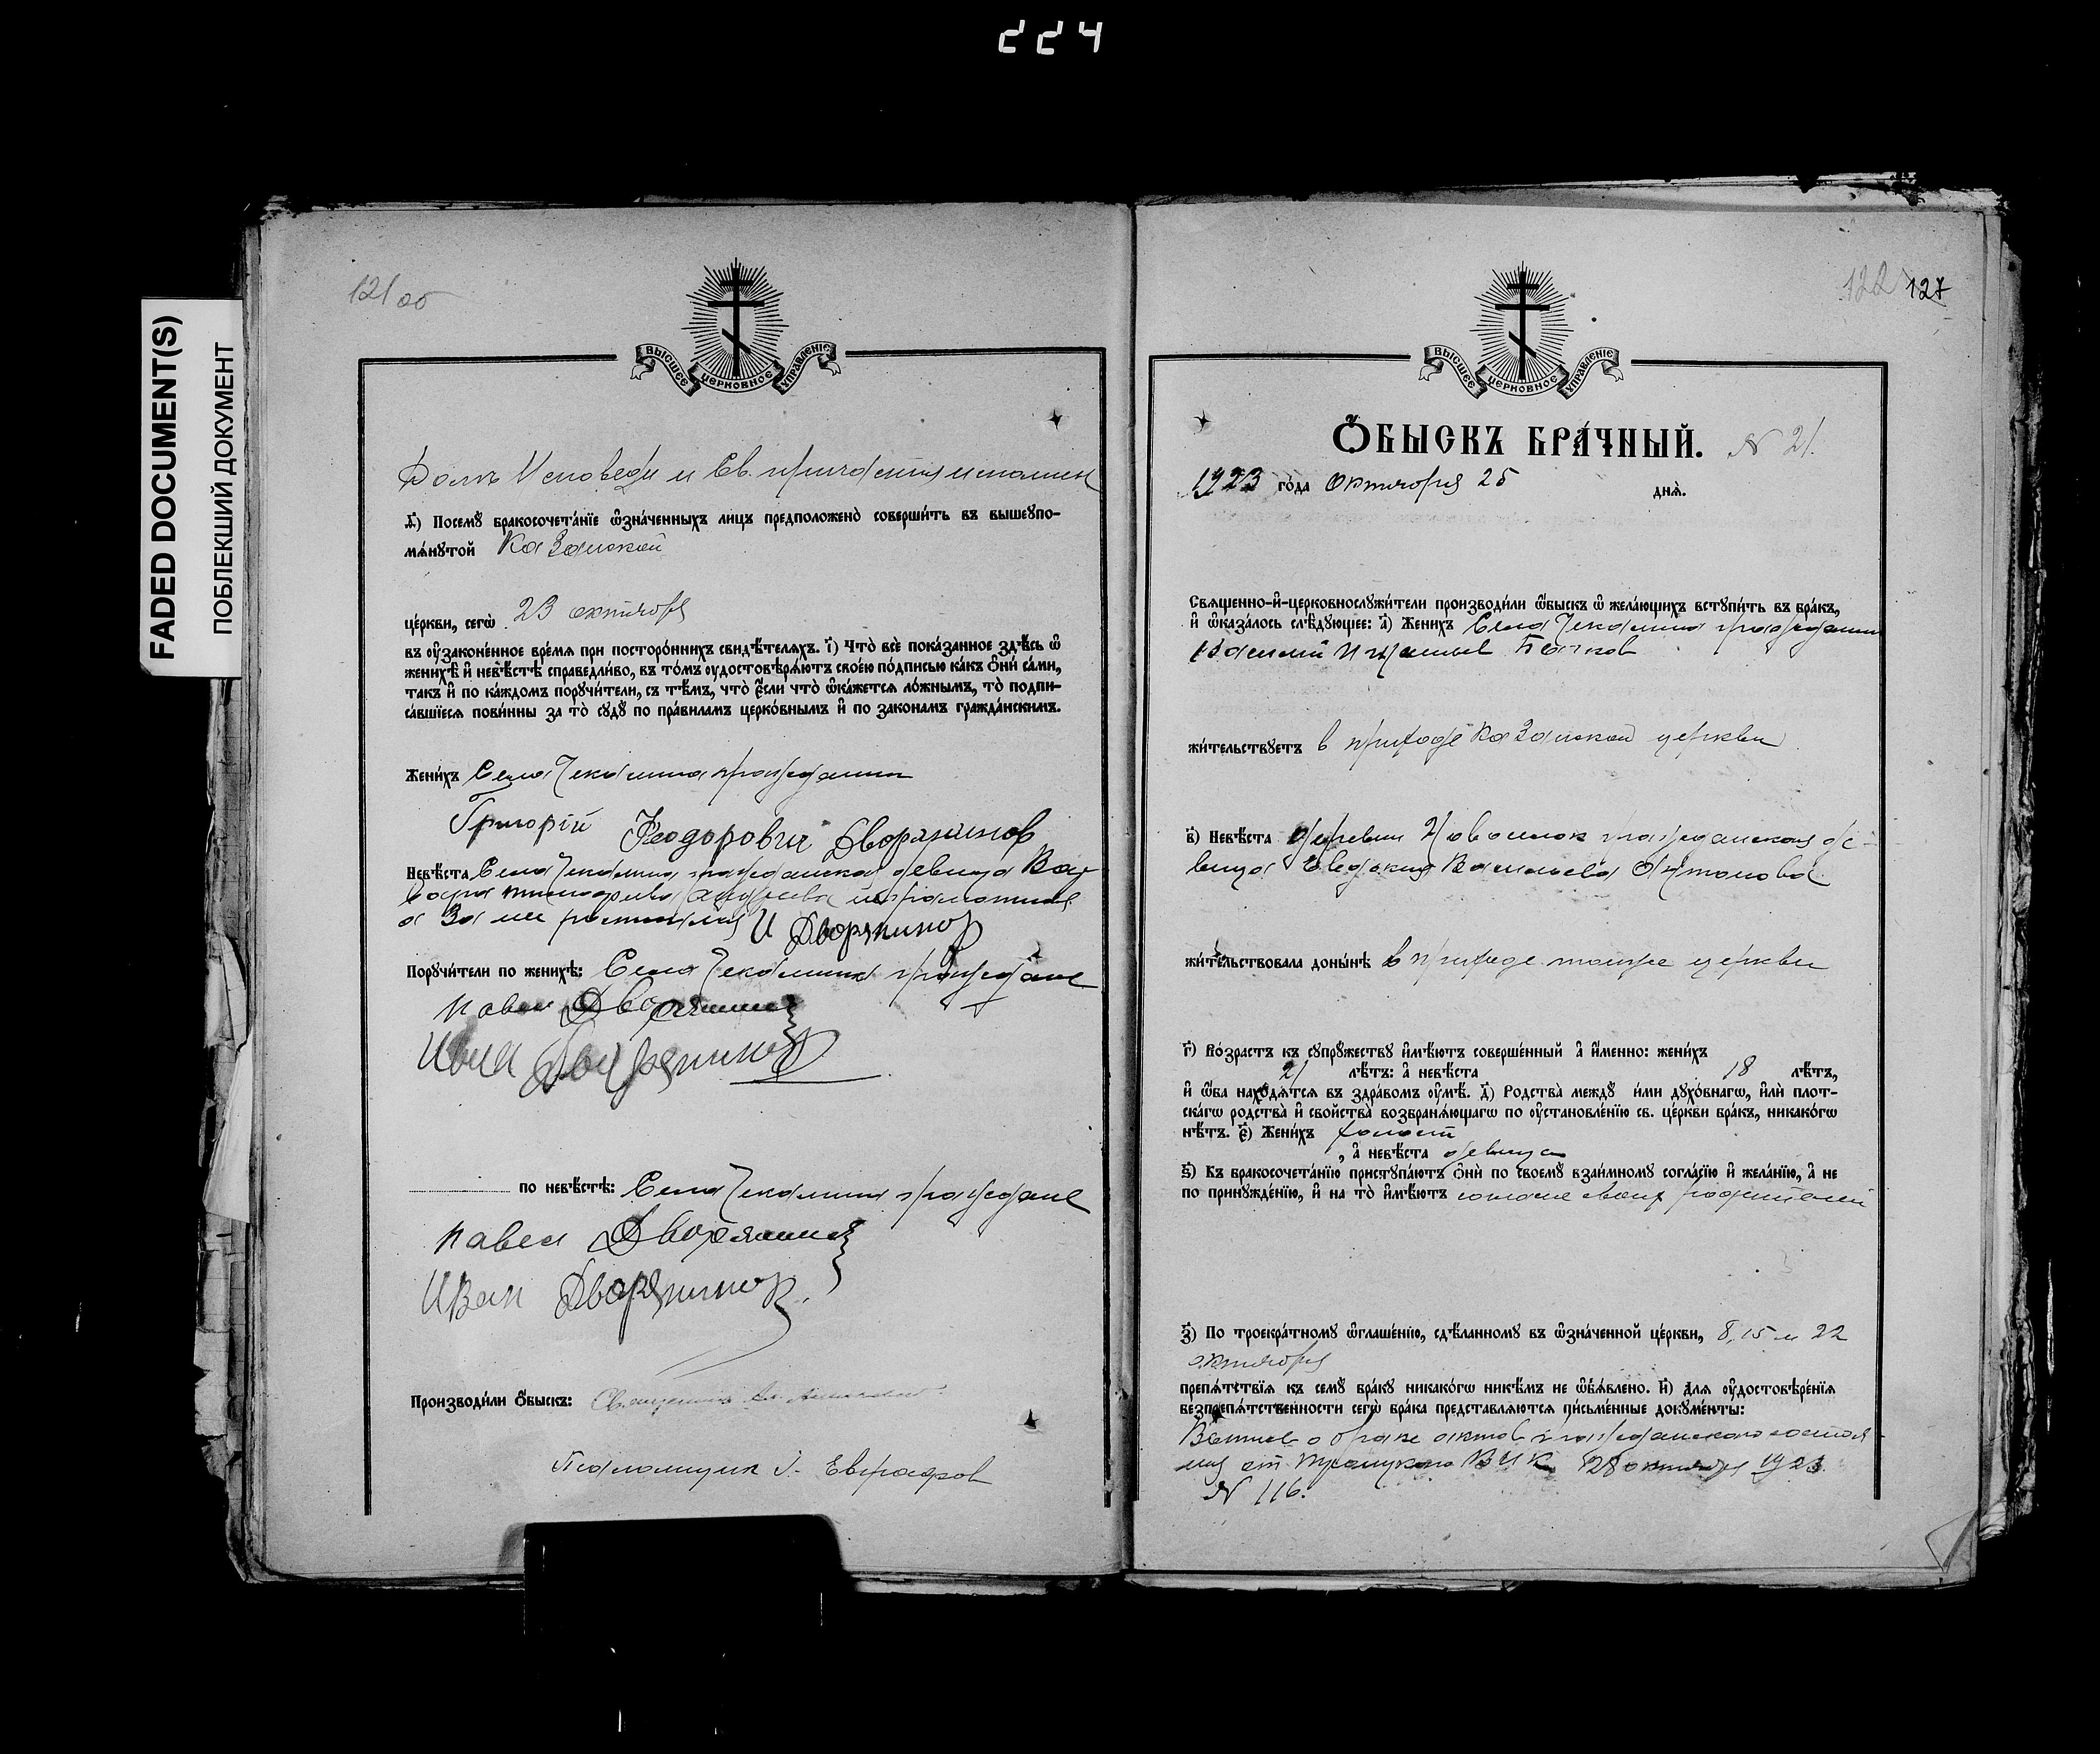 224
FADED DOCUMENT(S)
ПОБЛЕКШИЙ ДОКУМЕНТ
121 об
ВЫСШЕЕ ЦЕРКОВНОЕ УПРАВЛЕНІЕ
Долгъ Исповеди и Св. причастия исполнен
д҃) Посемꙋ̀ бракосочета́нїе ѡ҆зна́ченныхъ лицъ предположено̀ соверши́ть въ вышеꙋпо-
мѧ́нꙋтой Казанской
це́ркви, сегѡ̀ 23 октября
въ ᲂу҆зако́ненное вре́мя при посторо́ннихъ свидѣ́телѧхъ. і҃) Что̀ всѐ пока́занное здѣ́сь ѡ҆
женихѣ̀ и҆ невѣ́стѣ справедли́во, въ то́мъ ᲂу҆достовѣрѧ́ютъ свое́ю по́дписью ка́къ ѻ҆нѝ са́ми,
та́къ и҆ по ка́ждомъ порꙋчи́тели, съ тѣ́мъ, что̀ є҆́сли что̀ ѡ҆ка́жетсѧ ло́жнымъ, то̀ подпи-
са́вшїесѧ пови́нны за то̀ сꙋдꙋ̀ по пра́виламъ церко́внымъ и҆ по зако́намъ гражда́нскимъ.
Жени́хъ Села Чекалина гражданин
Григорій Феодорович Дворянинов
Невѣ́ста Села Чекалина гражданская девица Вар-
вара неграмотная
а За нее расписался И Дворянинов
Порꙋчи́тели по женихѣ̀: Села Чекалина граждане
Павел Дворянинов
Иван Дворянинов
по невѣ́стѣ: Села Чекалина граждане
Павел Дворянинов
Иван Дворянинов.
Производи́ли ѻ҆́быскъ: Священник
Псаломщик Евграфов
122 127
ВЫСШЕЕ ЦЕРКОВНОЕ УПРАВЛЕНІЕ
Ѻ҆́БЫСКЪ БРА́ЧНЫЙ. N 21.
1923 го́да Октября 25 днѧ̀.
Свѧщенно-и҆-церковнослꙋжи́тели производи́ли ѻ҆́быскъ ѡ҆ жела́ющихъ встꙋпи́ть въ бра́къ,
и҆ ѡ҆каза́лось слѣ́дꙋющее: а҃) Жени́хъ Села Чекалина гражданин
Василий
жи́тельствꙋетъ в приходе Казанской церкви
в҃) Невѣ́ста деревни гражданская де-
вица Евдокия Васильева
жи́тельствовала доны́нѣ в приходе тойже церкви
г҃) Во́зрастъ къ сꙋпрꙋ́жествꙋ и҆мѣ́ютъ соверше́нный а҆ и҆́менно: жени́хъ
21 лѣ́тъ: а҆ невѣ́ста 18 лѣ́тъ,
и҆ ѻ҆́ба нахо́дѧтсѧ въ здра́вомъ ᲂу҆мѣ̀. д҃) Родства̀ междꙋ̀ и́ми дꙋхо́внагѡ, и҆лѝ плот-
ска́гѡ родства̀ и҆ свойства̀ возбранѧ́ющагѡ по ᲂу҆становле́нїю св. це́ркви бра́къ, никако́гѡ
нѣ́тъ. є҃) Жени́хъ холост
, а҆ невѣ́ста девица
ѕ҃) Къ бракосочета́нїю пристꙋпа́ютъ ѻ҆нѝ по своемꙋ̀ взаи́мномꙋ согла́сїю и҆ жела́нїю, а҆ не
по принꙋжде́нїю, и҆ на то̀ и҆мѣ́ютъ согласие своих родителей
з҃) По троекра́тномꙋ ѡ҆глаше́нїю, сдѣ́ланномꙋ въ ѡ҆зна́ченной це́ркви, 8, 15 и 22
октября
препѧ́тствїѧ къ семꙋ̀ бра́кꙋ никако́гѡ никѣ́мъ не ѡ҆б̾ѧ́влено. и҃) Длѧ ᲂу҆достовѣре́нїѧ
безпрепѧ́тственности сегѡ̀ бра́ка представлѧ́ютсѧ пи́сьменные докꙋме́нты:
о браке актов гражданского состоя-
ния от ВИК октября 1923
N 116.